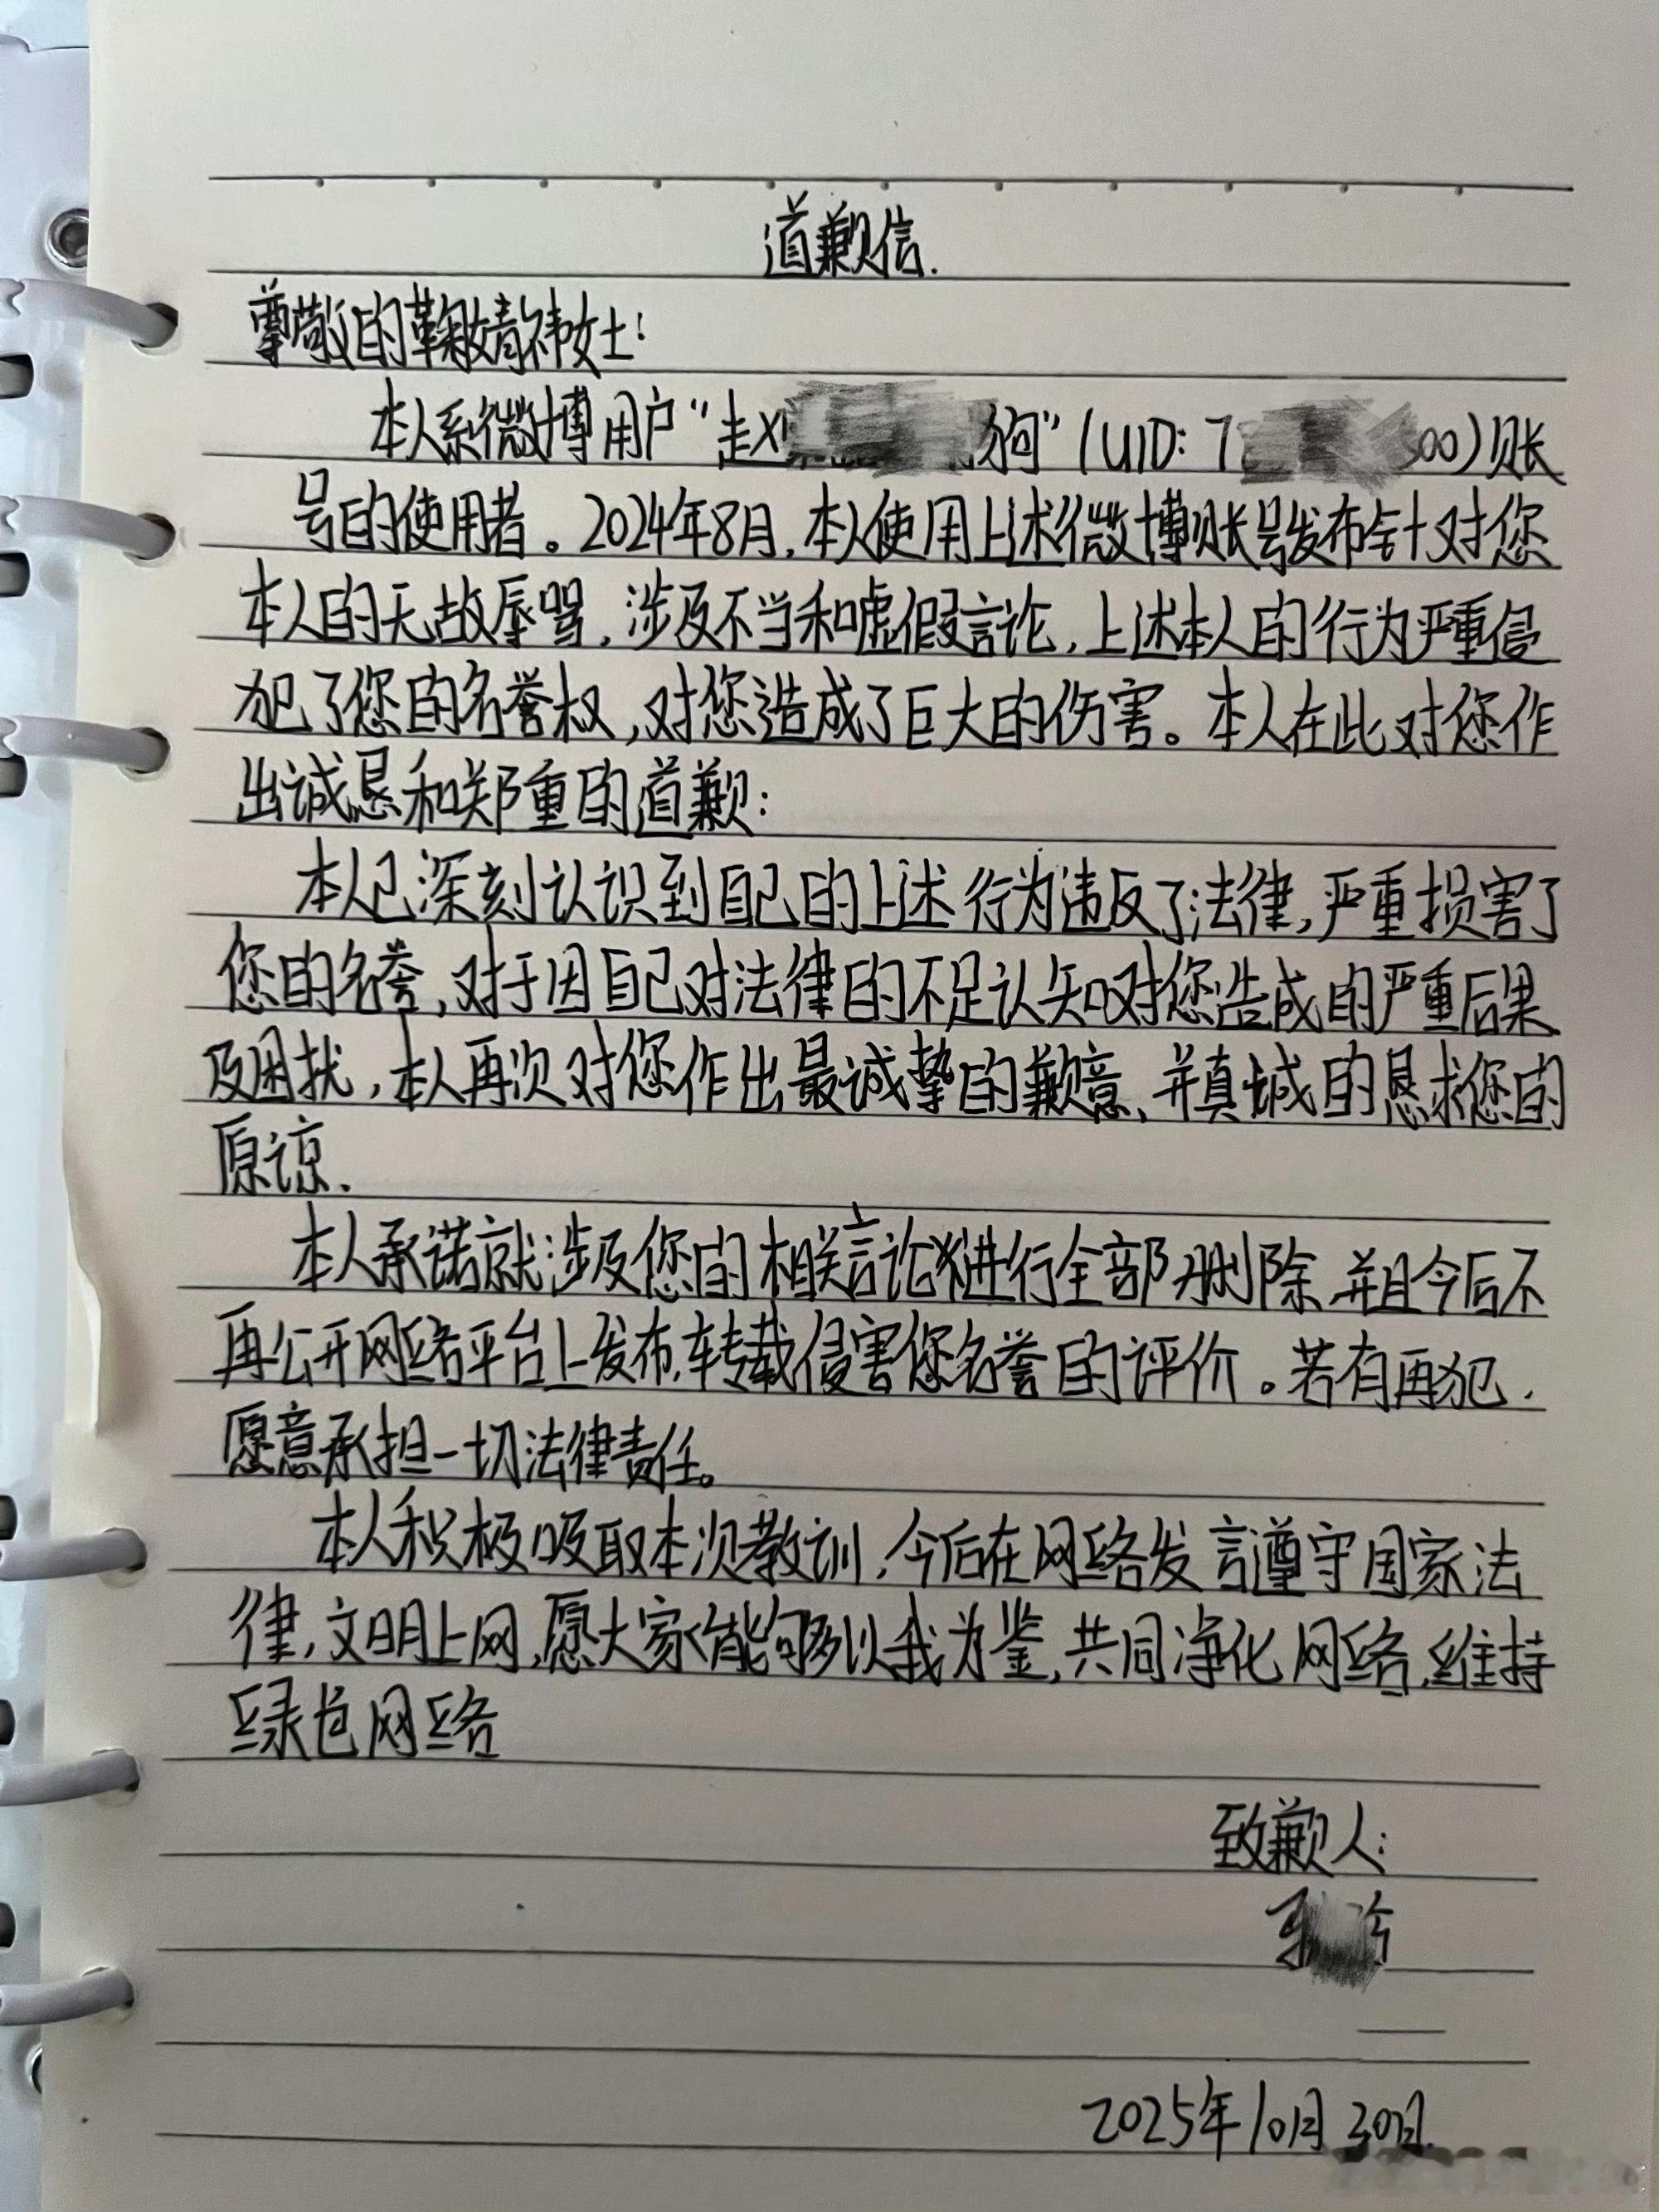 道歉信.
尊敬的鞠婧祎女士:
本人系微博用户“赵 狗”(UID: 7 300)账
号的使用者。2024年8月,本人使用上述微博账号发布针对您
本人的无故辱骂,涉及不当和虚假言论,上述本人的行为严重侵
犯了您的名誉权,对您造成了巨大的伤害。本人在此对您作
出诚恳和郑重的道歉:
本人已深刻认识到自己的上述行为违反了法律,严重损害了
您的名誉,对于因自己对法律的不足认知对您造成的严重后果
及困扰,本人再次对您作出最诚挚的歉意,并真诚的恳求您的
原谅.
本人承诺就涉及您的相关言论进行全部删除,并且今后不
再公开网络平台上发布,转载侵害您名誉的评价。若有再犯,
愿意承担一切法律责任。
本人积极吸取本次教训,今后在网络发言遵守国家法
律,文明上网,愿大家能够以我为鉴,共同净化网络,维持
绿色网络
致歉人:
2025年10月30日